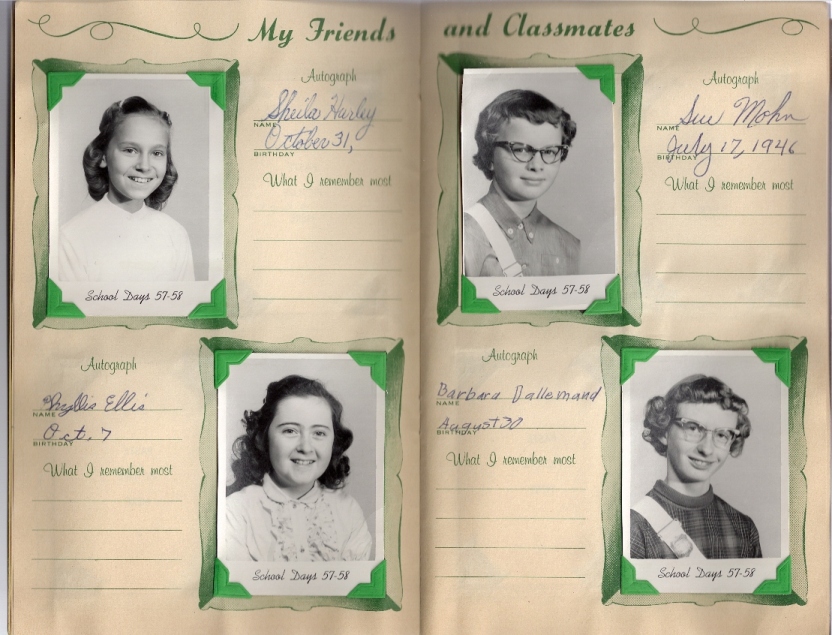 My Friends
Autograph
Sheila Harley
NAME
October 31,
BIRTHDAY
What I remember most
School Days 57-58
Autograph
Phyllis Ellis
NAME
Oct. 7
BIRTHDAY
What I remember most
School Days 57-58
and Classmates
Autograph
Sue Mohn
NAME
July 17, 1946
BIRTHDAY
What I remember most
School Days 57-58
Autograph
Barbara Dallemand
NAME
August 30
BIRTHDAY
What I remember most
School Days 57-58